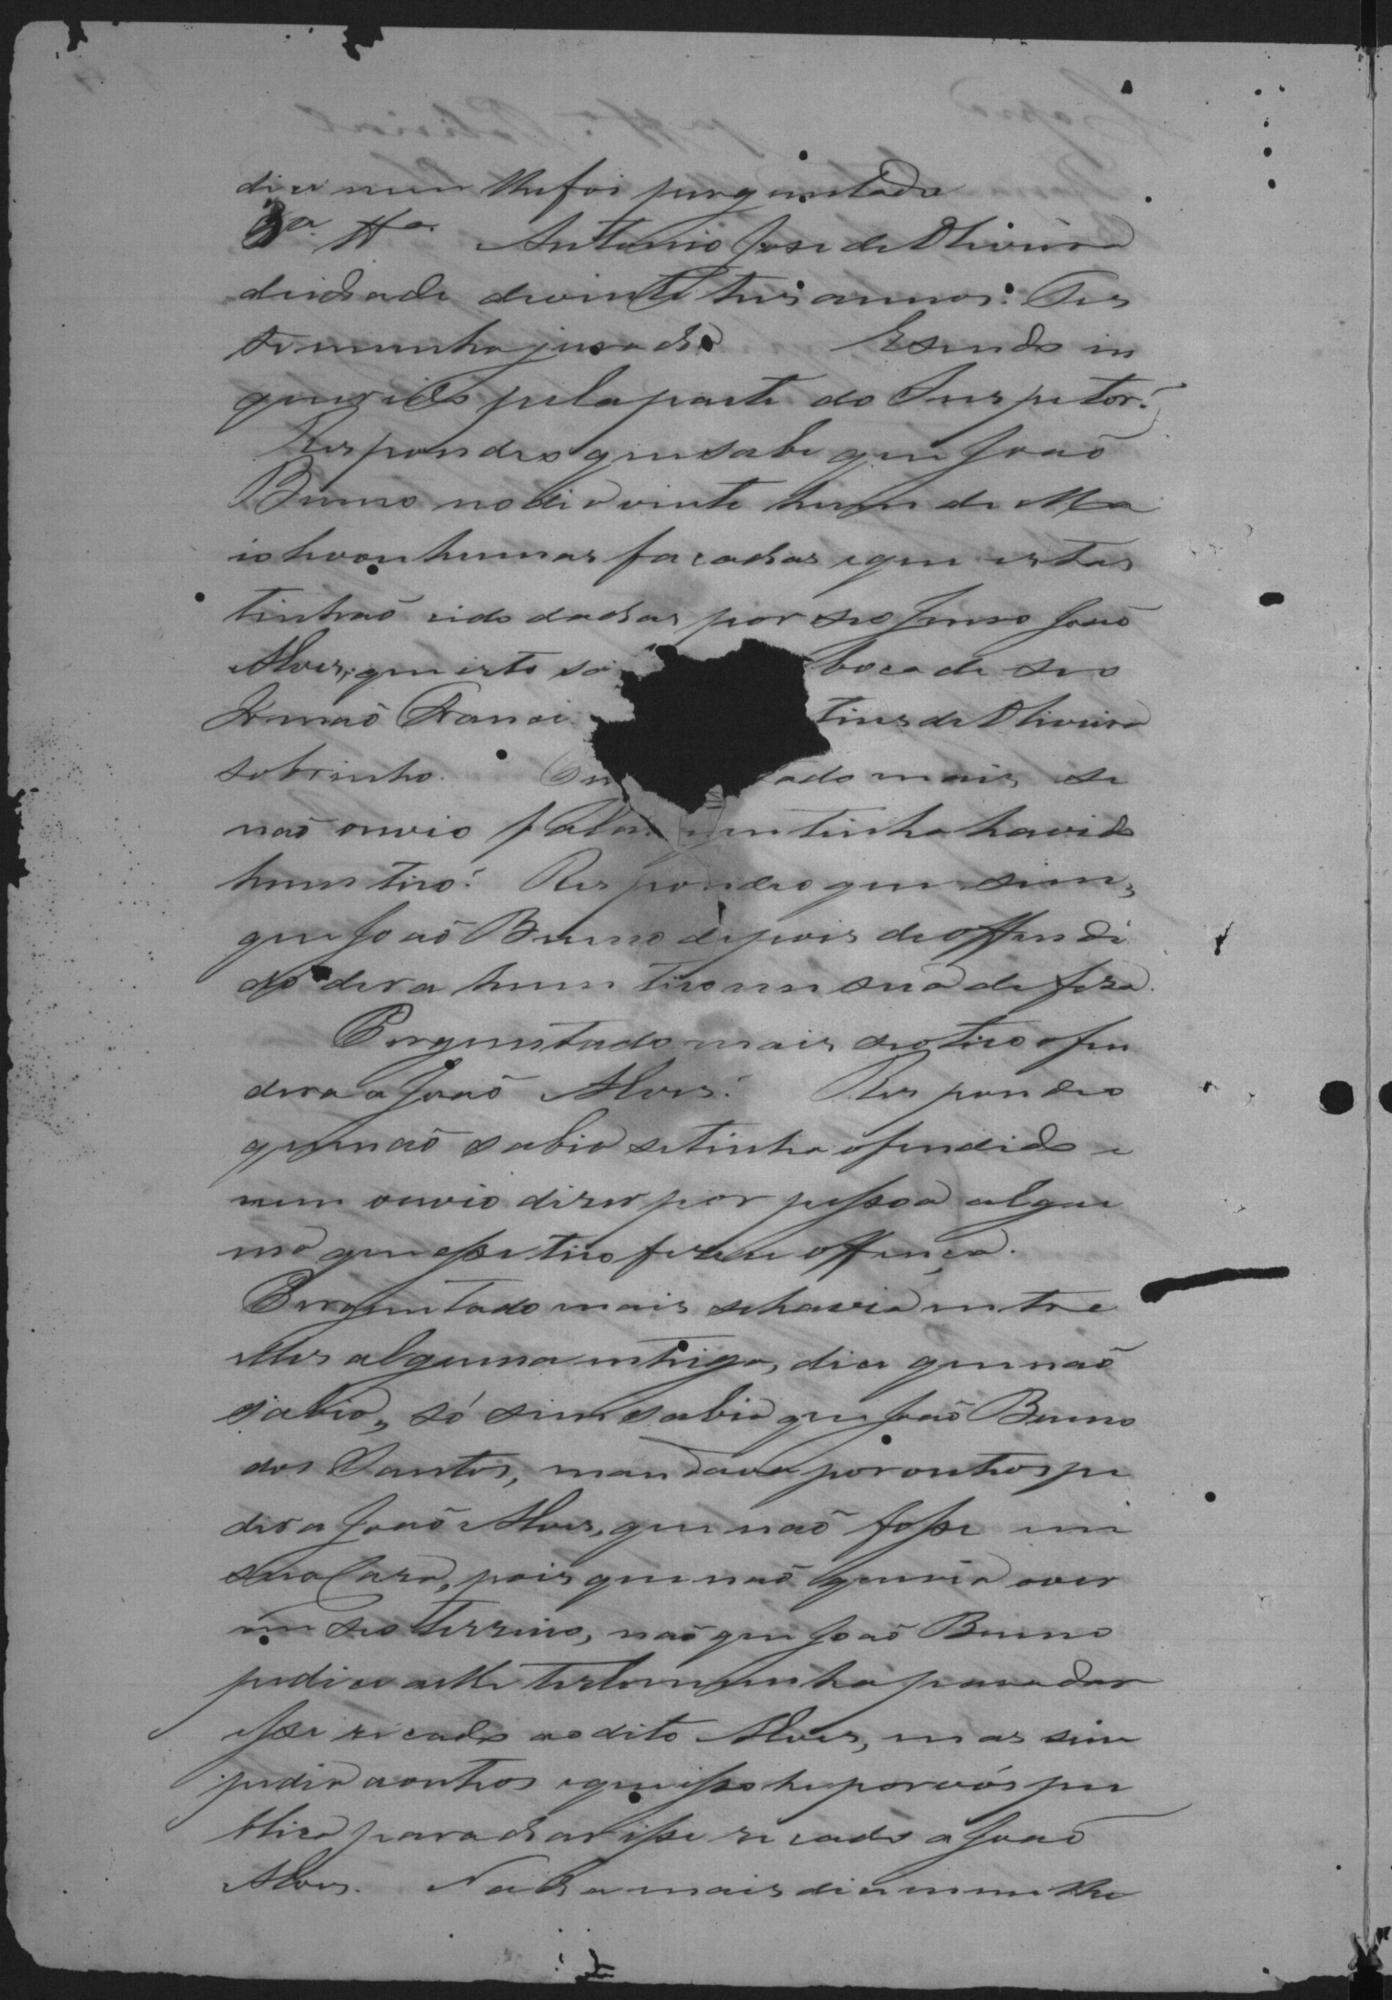 dice nem lhe foi perguntado
3ª Tª Antonio Jose de Oliveira
de idade de vinte tres annos. Tes
temunha jurada Esendo in
querido pela parte do Inspetor?
Respondeo que sabe que João
Bueno no dia vinte hum de Ma
io levou humas facadas e que estas
tinhaõ sido dadas por seo Genro João
Alves; que isto sá boca de seo
Irmaõ Franci tins de Oliveira
sobrinho. tado mais se
naõ ouvio falar em tinha havido
hum tiro? Respondeo que sim,
que João Bueno depois de offendi
do dera hum tiro em sua defeza.
Perguntado mais se o tiro ofen
dera a João Alves? Respondeo
que naõ sabia se tinha ofendido e
nem ouvio dizer por pessoa algu
ma que esse tiro fizesse offença.
Perguntado mais se havia entre
elles alguma intriga, dice que naõ
sabia, só sim sabia que João Bueno
dos Santos, mandava por outros pe
dir a João Alves, que naõ fosse em
sua Caza, pois que naõ queria o ver
em seo terreno, naõ que João Bueno
pedice a elle testemunha para dar
esse recado ao dito Alves, mas sim
pedia a outros e que isso he por vós pu
blica para dar esse recado a João
Alves. Nada mais dice nem lhe